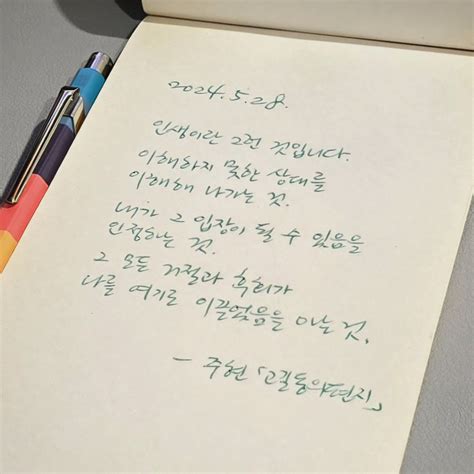 2024.5.28.
인생이란 그런 것입니다.
이해하지 못한 상대를
이해해 나가는 것.
내가 그 입장이 될 수 있음을
인정하는 것.
그 모든 거절과 후회가
나를 여기로 이끌었음을 아는 것.
- 주현 「고길동의 편지」